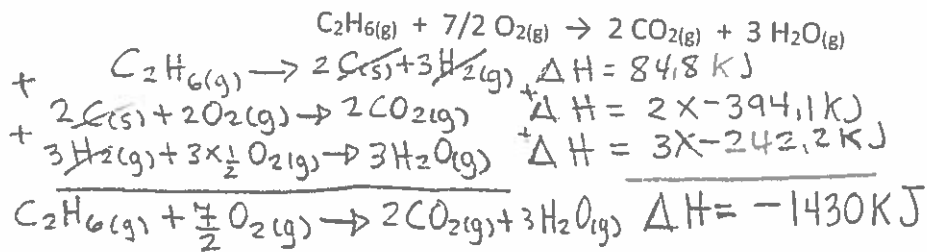 C2H6(g) + 7/2 O2(g) → 2 CO2(g) + 3 H2O(g)
+ C2H6(g) → 2 C(s) + 3 H2(g) ΔH = 84,8 KJ
+ 2 C(s) + 2O2(g) → 2CO2(g) + ΔH = 2 X -394,1KJ
+ 3 H2(g) + 3x1/2 O2(g) → 3H2O(g) + ΔH = 3X-242,2KJ
C2H6(g) + 7/2 O2(g) → 2CO2(g) + 3H2O(g) ΔH = -1430KJ